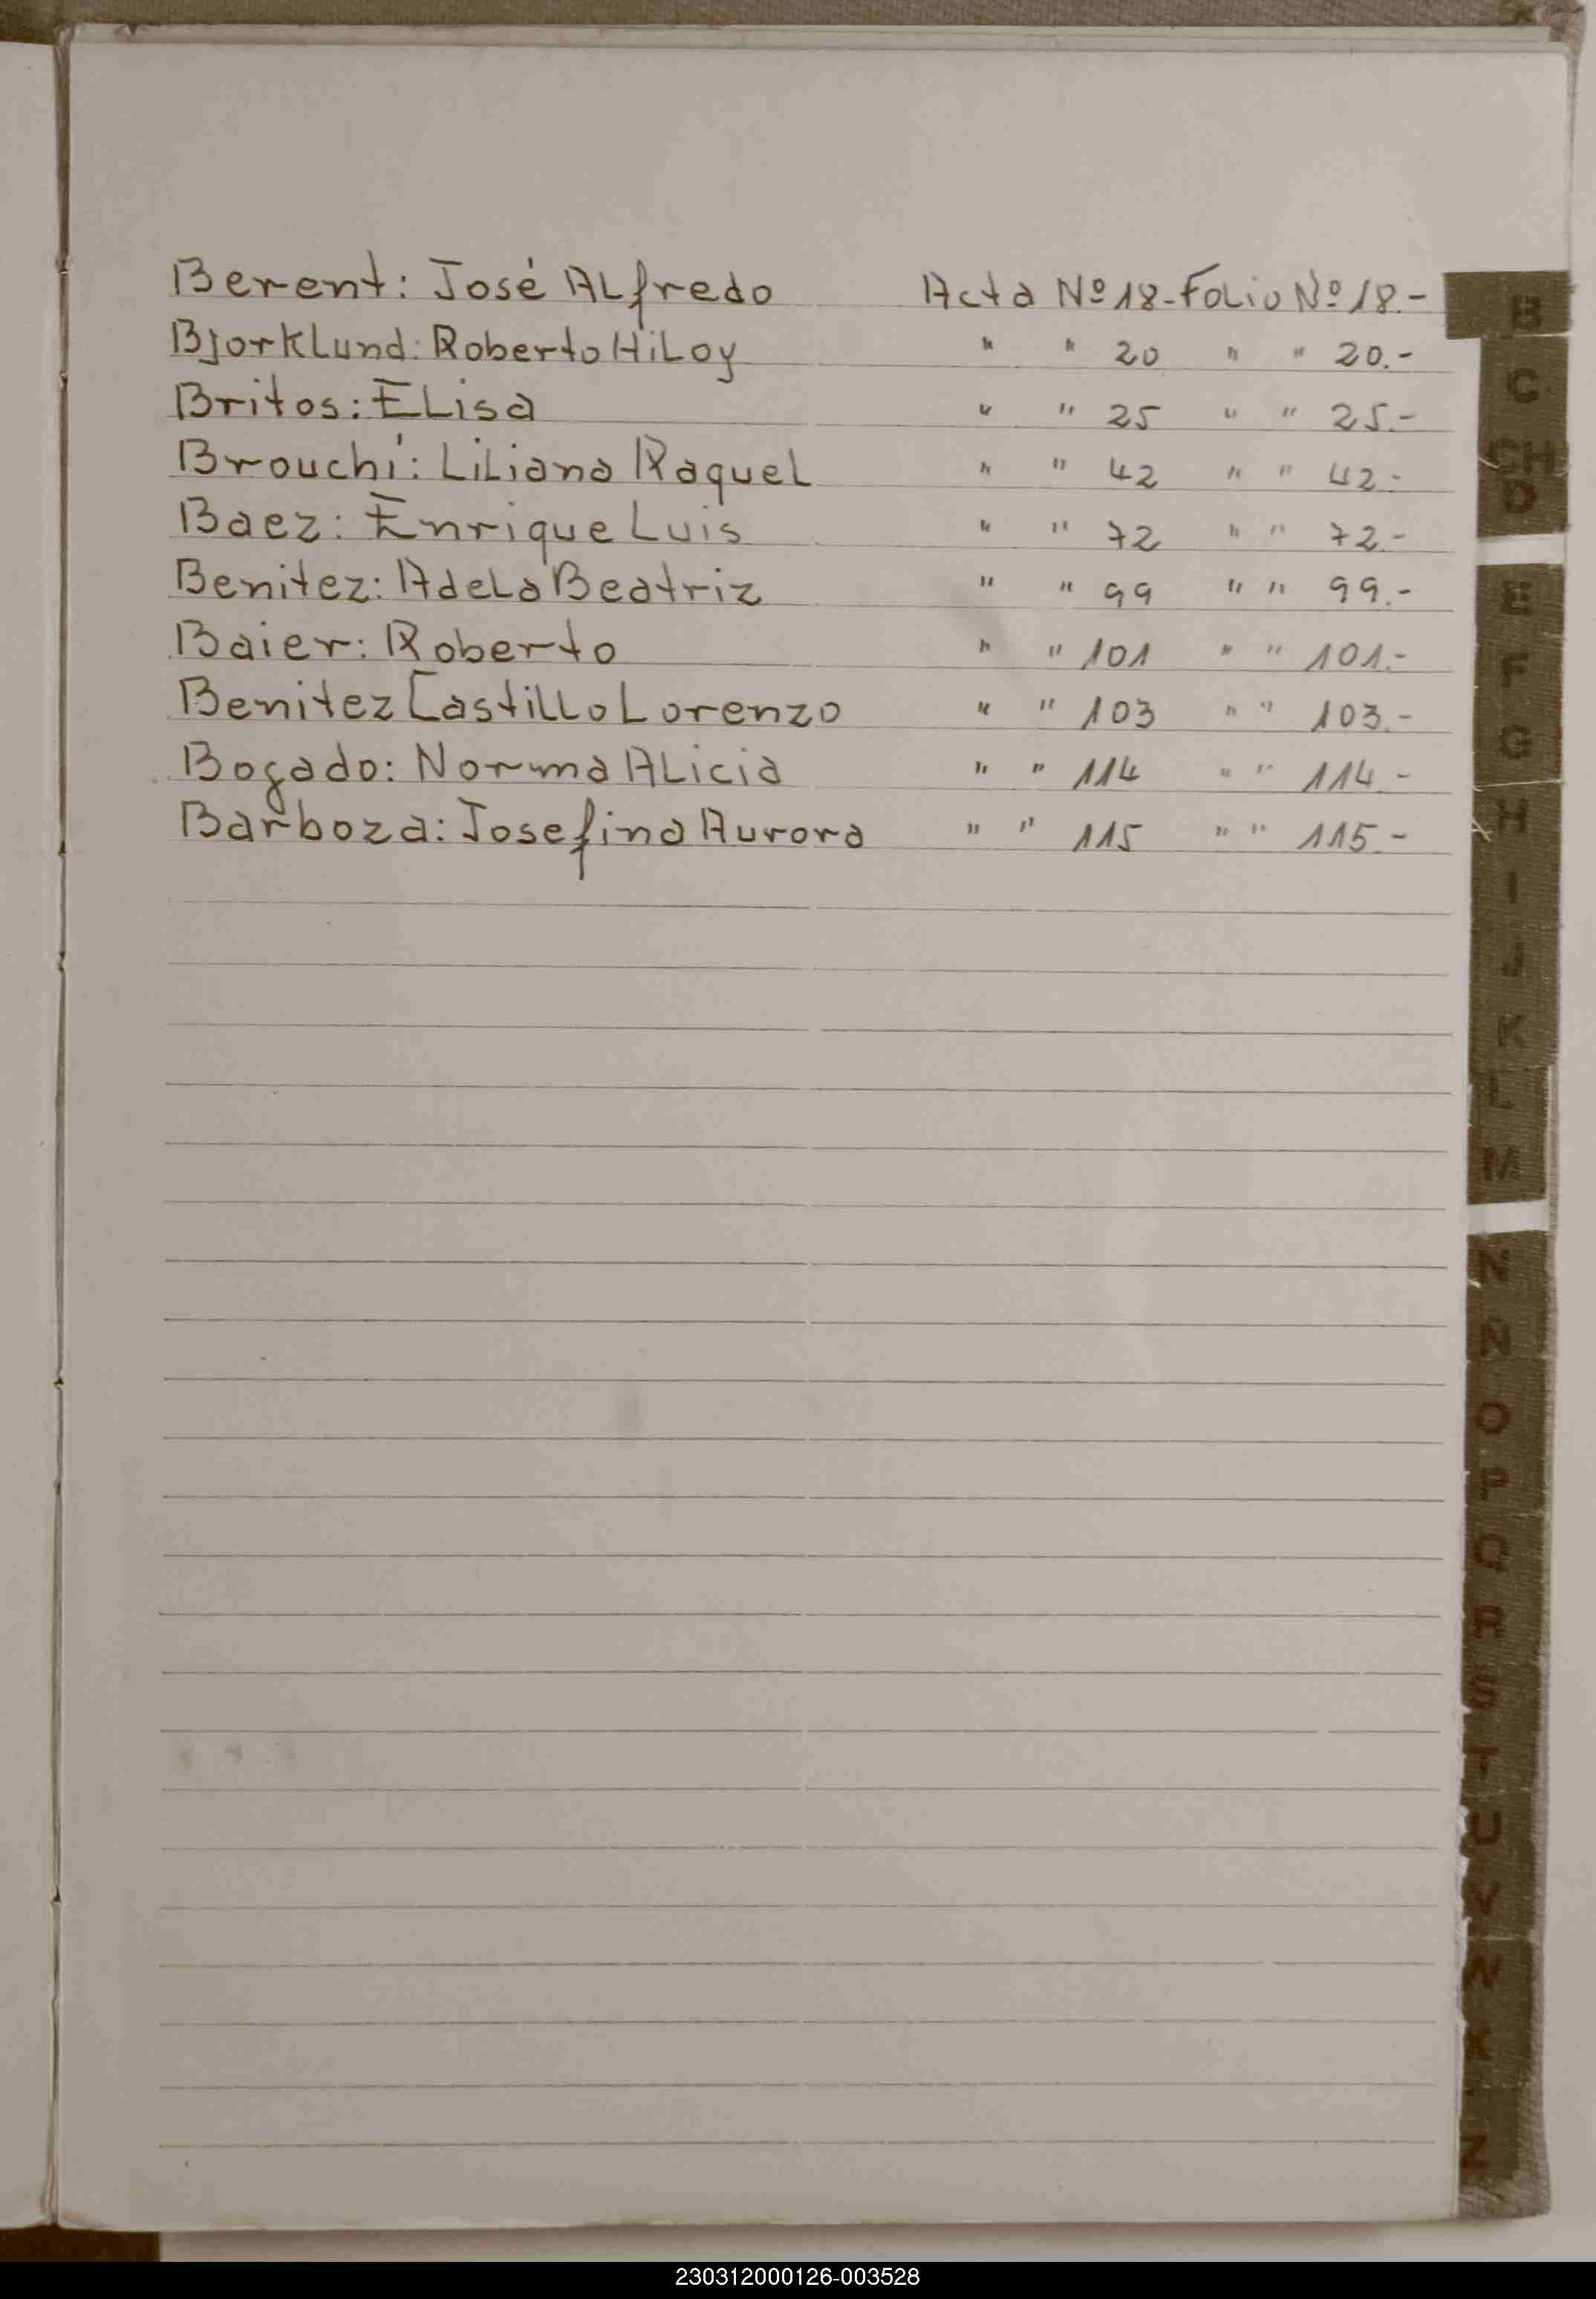 Berent: José Alfredo Acta Nº 18.- Folio Nº 18.-
Bjorklund: Roberto Hiloy " " 20 " " 20.-
Britos: Elisa " " 25 " " 25.-
Brouchí: Liliana Raquel " " 42 " " 42.-
Baez: Enrique Luis " " 72 " " 72.-
Benitez: Adela Beatriz " " 99 " " 99.-
Baier: Roberto " " 101 " " 101.-
Benitez Castillo Lorenzo " " 103 " " 103.-
Bogado: Norma Alicia " " 114 " " 114.-
Barboza: Josefina Aurora " " 115 " " 115.-
B
C
CH
D
E
F
G
H
I
J
K
L
M
N
Ñ
O
P
Q
R
S
T
U
V
W
X
Z
230312000126-003528